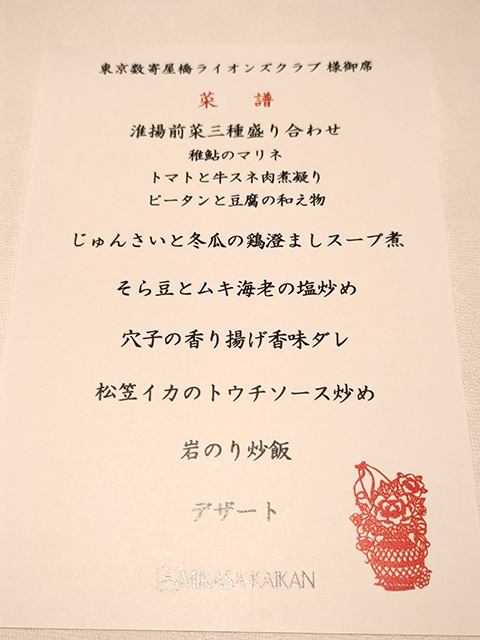 東京数寄屋橋ライオンズクラブ 様御席
菜 譜
淮揚前菜三種盛り合わせ
稚鮎のマリネ
トマトと牛スネ肉煮凝り
ピータンと豆腐の和え物
じゅんさいと冬瓜の鶏澄ましスープ煮
そら豆とムキ海老の塩炒め
穴子の香り揚げ香味ダレ
松笠イカのトウチソース炒め
岩のり炒飯
デザート
MIKASA KAIKAN